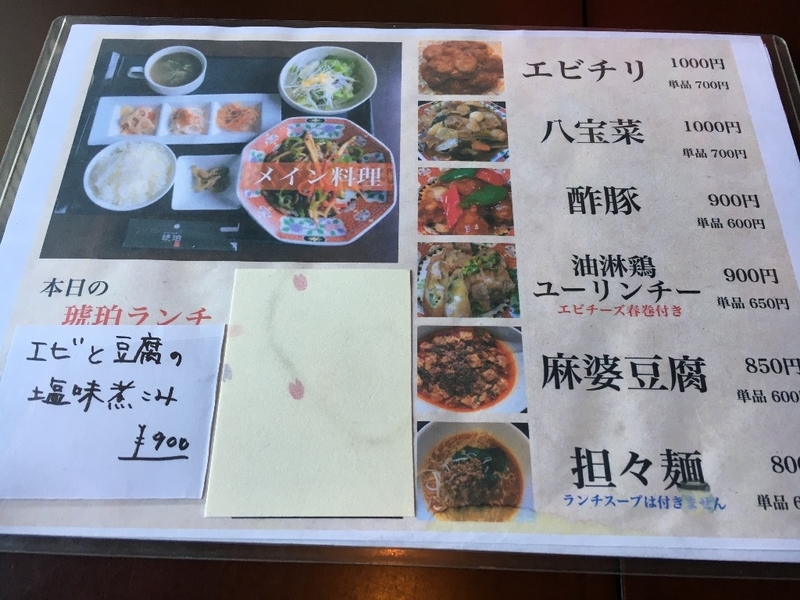 メイン料理
琥珀
本日の
琥珀ランチ
エビと豆腐の
塩味煮こみ
¥900
エビチリ 1000円
単品 700円
八宝菜 1000円
単品 700円
酢豚 900円
単品 600円
油淋鶏
ユーリンチー 900円
単品 650円
エビチーズ春巻付き
麻婆豆腐 850円
単品 600
担々麺 800
ランチスープは付きません 単品 6